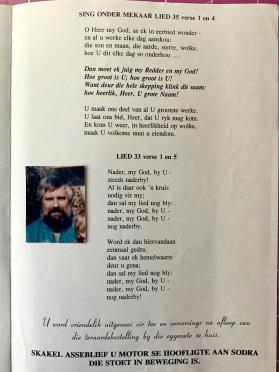 SING ONDER MEKAAR LIED 35 verse 1 en 4
O Heer my God, as ek in eerbied wonder -
en al u werke elke dag aanskou:
die son en maan, die aarde, sterre, wolke,
hoe U dit elke dag so onderhou ....
Dan moet ek juig my Redder en my God!
Hoe groot is U; hoe groot is U!
Want deur die hele skepping klink dit saam:
hoe heerlik, Heer, U grote Naam!
U maak ons deel van al U grootse werke.
U laat ons bid, Heer, dat U ryk mag kom.
En kom U weer, in heerlikheid op wolke,
maak U volkome nuut u eiendom.
LIED 33 verse 1 en 5
Nader, my God, by U -
steeds naderby!
Al is daar ook 'n kruis
nodig vir my;
dan sal my lied nog bly:
nader, my God, by U -
nader, my God, by U -
nog naderby.
Word ek dan hiervandaan
eenmaal gedra,
dan vaar ek hemelwaarts
deur u gena;
dan sal my lied nog bly:
nader, my God, by U -
nader, my God, by U -
nog naderby!
U word vriendelik uitgenooi vir tee en verversings na afloop van
die teraardebestelling by die eggenote se huis.
SKAKEL ASSEBLIEF U MOTOR SE HOOFLIGTE AAN SODRA
DIE STOET IN BEWEGING IS.